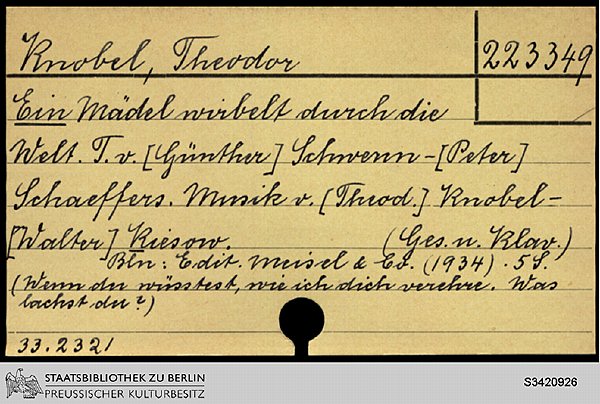 Knobel, Theodor
223349
Ein Mädel wirbelt durch die
Welt. T. v. [Günther] Schwenn-[Peter]
Schaeffers. Musik v. [Theod.] Knobel-
[Walter] Kiesow. (Ges. u. Klav.)
Bln: Edit. Meisel & Co. (1934). 5 S.
(Wenn du wüsstest, wie ich dich verehre. Was
lachst du?)
33.2321
STAATSBIBLIOTHEK ZU BERLIN
PREUSSISCHER KULTURBESITZ
S3420926